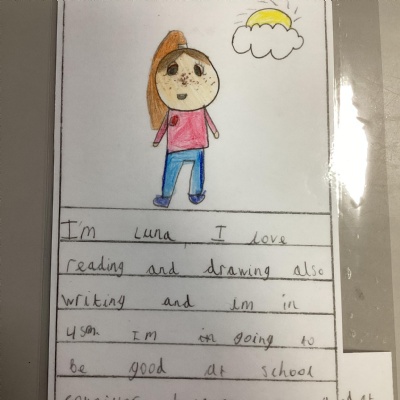 I'm Luna, I love
reading and drawing also
writing and im in
I'm going to
be good at school